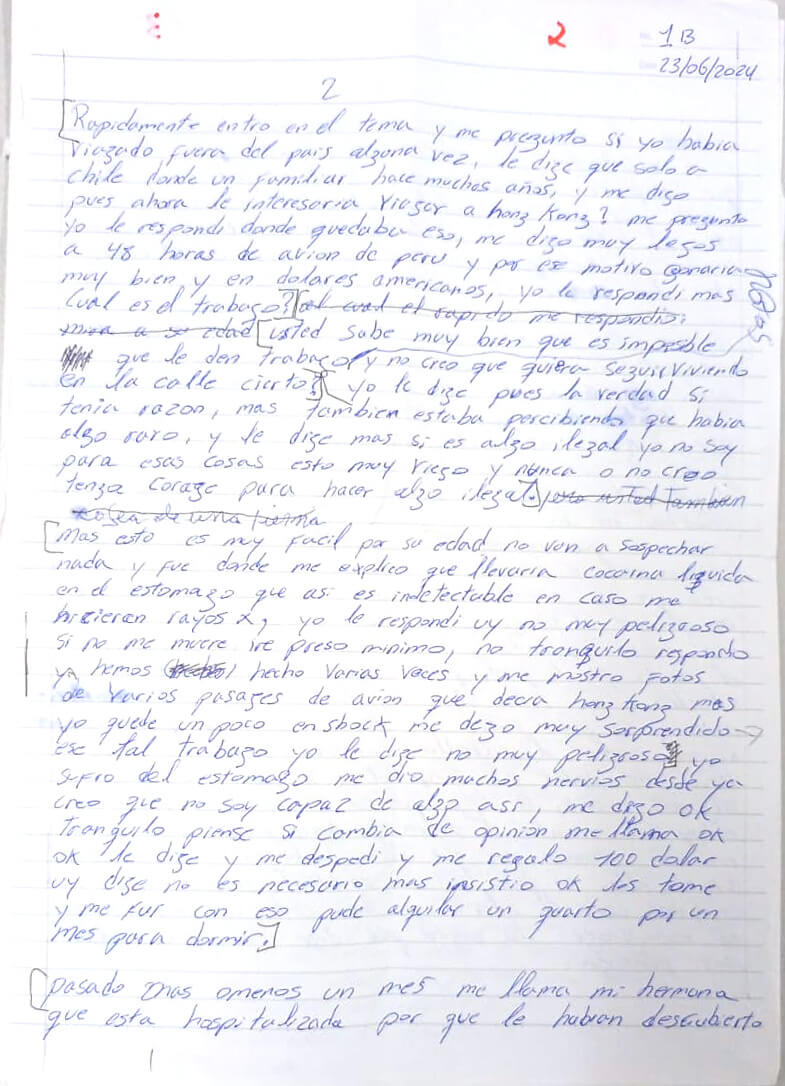 2
1B
23/06/2024
2
[Rapidamente entro en el tema y me pregunto si yo habia
viagado fuera del pais algona vez, le dige que solo a
chile donde un familiar hace muchos años, y me digo
pues ahora le interesaria viagar a hong Kong? me pregunto
yo le respondi donde quedaba eso, me digo muy legos
a 48 horas de avion de peru y por ese motivo ganaria
muy bien y en dolares americanos, yo le respondi mas
Cual es el trabago?] [al cual el rapido me respondio:
mira a se edad [usted sabe muy bien que es imposible
que le den trabago y no creo que quiera seguir viviendo
en la calle cierto?] yo le dige pues la verdad si
tenia razon, mas tambien estaba percibiendo que habia
algo raro, y le dige mas si es algo ilegal yo no soy
para esas cosas esto muy viego y nunca o no creo
tenga corage para hacer algo ilegal.] pero usted tambien
de una
[Mas esto es muy facil por su edad no van a sospechar
nada y fue donde me explico que llevaria cocaina liquida
en el estomago que asi es indetectable en caso me
hicieran rayos x, yo le respondi uy no muy peligroso
si no me muere ire preso minimo, no tranquilo respondio
ya hemos hecho varias veces y me mostro fotos
de varios pasages de avion que decia hong Kong mas
yo quede un poco en shock me dego muy sorprendido →
ese tal trabago yo le dige no muy peligroso, yo
sufro del estomago me dio muchos nervios desde ya
creo que no soy capaz de algo asi, me digo ok
tranquilo piense si cambia de opinion me llama ok
ok le dige y me despedi y me regalo 100 dolar
uy dige no es necesario mas insistio ok los tome
y me fui con eso pude alquilar un quarto por un
mes para dormir.]
[pasado mas omenos un mes me llama mi hermana
que esta hospitalizada por que le habian descubierto